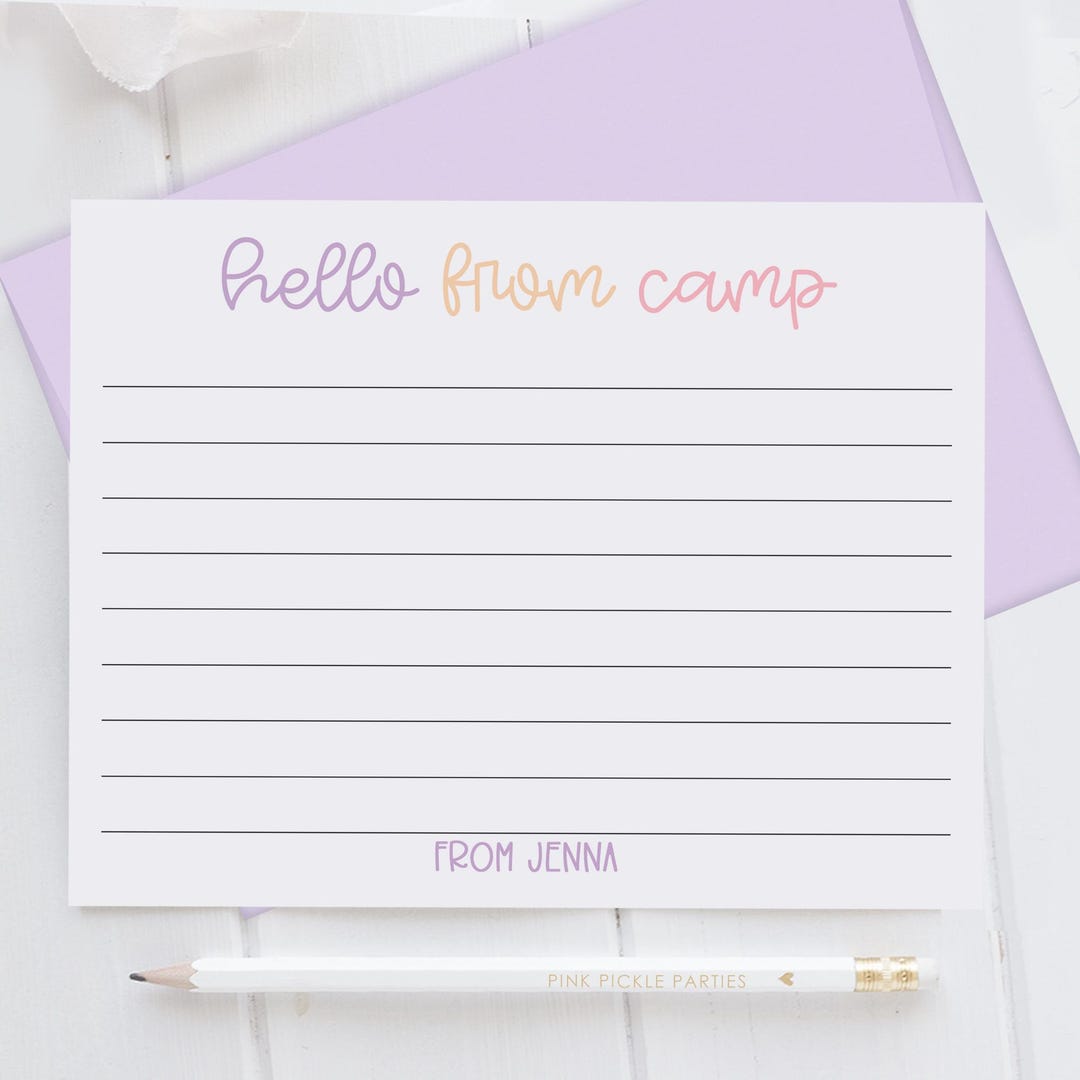 hello from camp
FROM JENNA
PINK PICKLE PARTIES